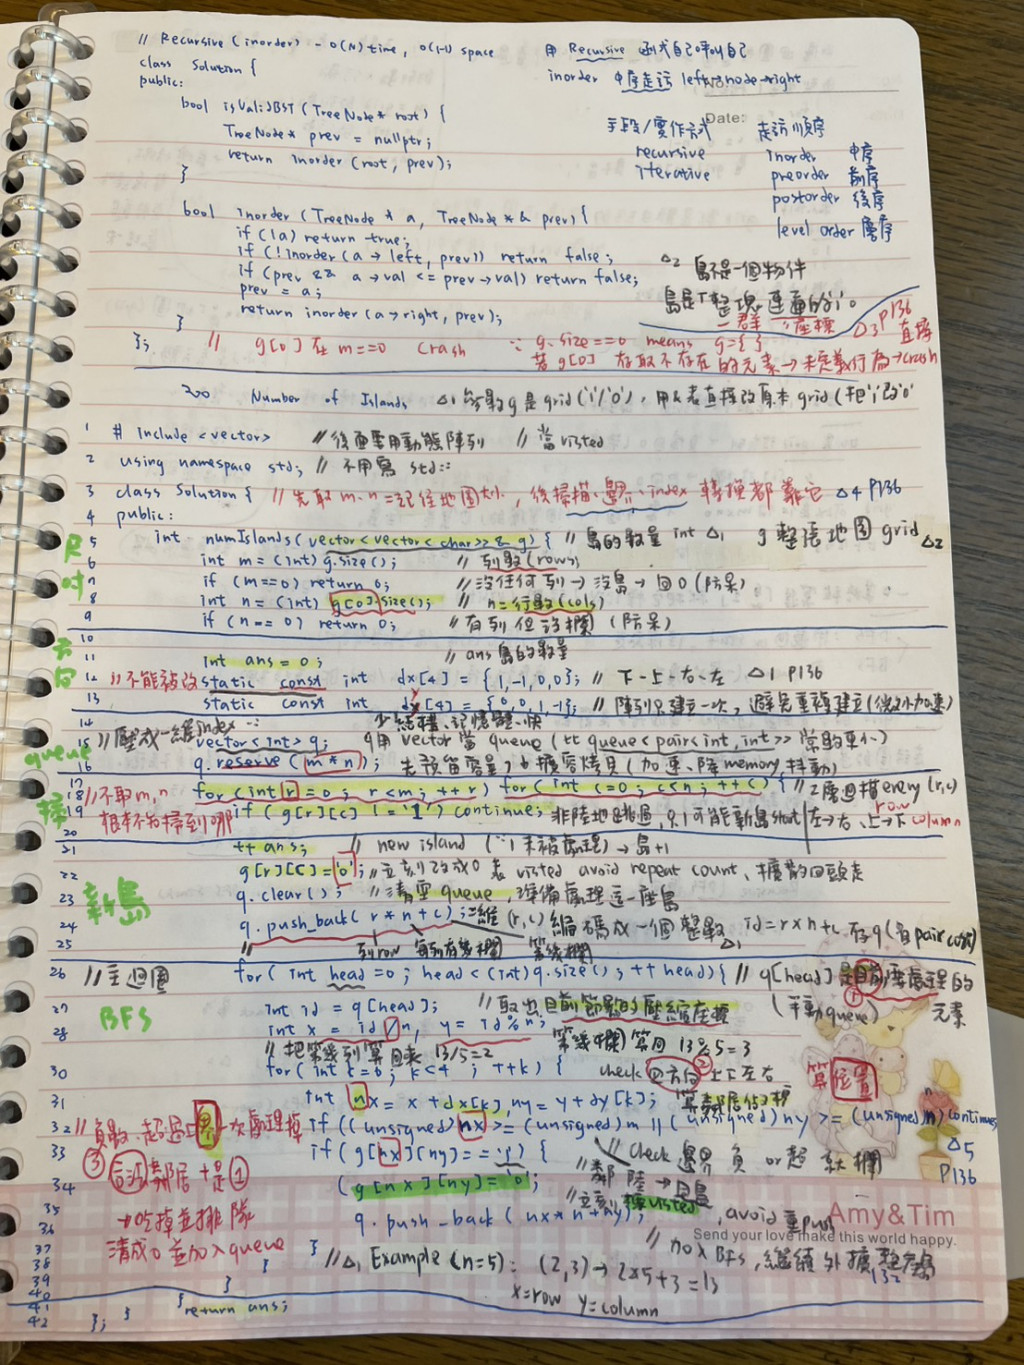 // Recursive (inorder) - O(N) time, O(H) space
class Solution {
public:
bool isValidBST (TreeNode* root) {
TreeNode* prev = nullptr;
return inorder (root, prev);
}
bool inorder (TreeNode * a, TreeNode *& prev) {
if (!a) return true;
if (!inorder (a → left, prev)) return false;
if (prev && a→val <= prev→val) return false;
prev = a;
return inorder (a→right, prev);
}
};
用 Recursive 函式自己呼叫自己
inorder 中序走訪 left→node→right
No:
Date:
手段/實作方式 走訪順序
recursive inorder 中序
iterative preorder 前序
postorder 後序
level order 層序
△2 島不是一個物件
島是整塊連通的'1'。
一群 座標
△3 P136
直接
// g[0] 在 m==0 crash ∵ g.size==0 means g={ }
若 g[0] 存取不存在的元素→未定義行為→crash
200 Number of Islands △1 參數g是grid('1'/'0'), 用&表直接改原本grid(把'1'改'0'
1 # include <vector> // 後面要用動態陣列 // 當visted
2 using namespace std; // 不用寫 std::
3 class Solution { // 先取m、n=記住地圖大小, 後掃描、邊界、index 轉換都靠它 △4 P136
4 public:
尺寸
5 int numIslands (vector<vector<char>> & g) { // 島的數量 int △1 g 整張地圖 grid △2
6 int m = (int) g.size(); // 列數(rows)
7 if (m==0) return 0; // 沒任何列→沒島→回0 (防呆)
8 int n = (int) g[0].size(); // n=行數(cols)
9 if (n == 0) return 0; // 有列但沒欄 (防呆)
方向
10
11 int ans = 0; // ans 島的數量
12 // 不能被改 static const int dx[4] = {1,-1,0,0}; // 下-上-右-左 △1 P136
13 static const int dy[4] = {0,0,1,-1}; // 陣列只建立一次, 避免重複建立(微小加速)
14 // 壓成一維index ∵ 少結構、記憶體、快
queue
15 vector<int> q; q用 vector 當 queue (比 queue<pair<int,int>> 常數更小)
16 q.reserve (m*n); 先預留容量, 少擴容拷貝(加速、降memory抖動)
掃
17
18 // 不取m,n for (int r = 0; r<m; ++r) for (int c=0; c<n; ++c) { // 2層迴圈掃every (r,c)
19 根本不知掃到哪 if ( g[r][c] != '1') continue; 非陸地跳過, 只1可能新島start 左→右、上→下 row column
20
新島
21 ++ ans; // new island (∵1未被處理)→島+1
22 g[r][c] = '0'; // 立刻改成0 表 visted avoid repeat count、擴散回頭走
23 q.clear(); // 清空 queue, 準備處理這一座島
24 q.push_back( r*n+c ); 二維 (r,c) 編碼成一個整數 △1 id=r×n+c 存q(省pair成本)
25 // 列row 每列有幾欄 第幾欄
26 // 主迴圈 for ( int head=0; head<(int)q.size(); ++head) { // q[head] 是目前要處理的
(手動queue) 元素
BFS
27 int id = q[head]; // 取出目前節點的壓縮座標
28 int x = id / n, y = id % n; 第幾欄) 算回 13%5=3
// 把第幾列算回來 13/5=2
30 for (int k=0; k<4; ++k) check 四方向 上下左右 ②
算位置
31 int nx = x+dx[k], ny = y+dy[k]; 算鄰居位置
32 // 負數、超過上界 一次處理掉 if ((unsigned) nx >= (unsigned) m || (unsigned) ny >= (unsigned) n) continue;
△5
P136
33 if (g[nx][ny] == '1') { // check 邊界 負 or 超 m欄
③ 合法鄰居+是①
34 (g[nx][ny] = '0'; // 鄰陸→同島
→吃掉並排隊 // 立刻標visted, avoid 重push
35
36 q.push_back ( nx*n+ny);
清成0並加入queue
// 加入BFS, 繼續外擴整座島
132
Amy&Tim
Send your love make this world happy.
37 }
38 } // △1 Example (n=5): (2,3)→2×5+3=13
39 x=row y=column
40 }
41 } return ans;
42 }; }